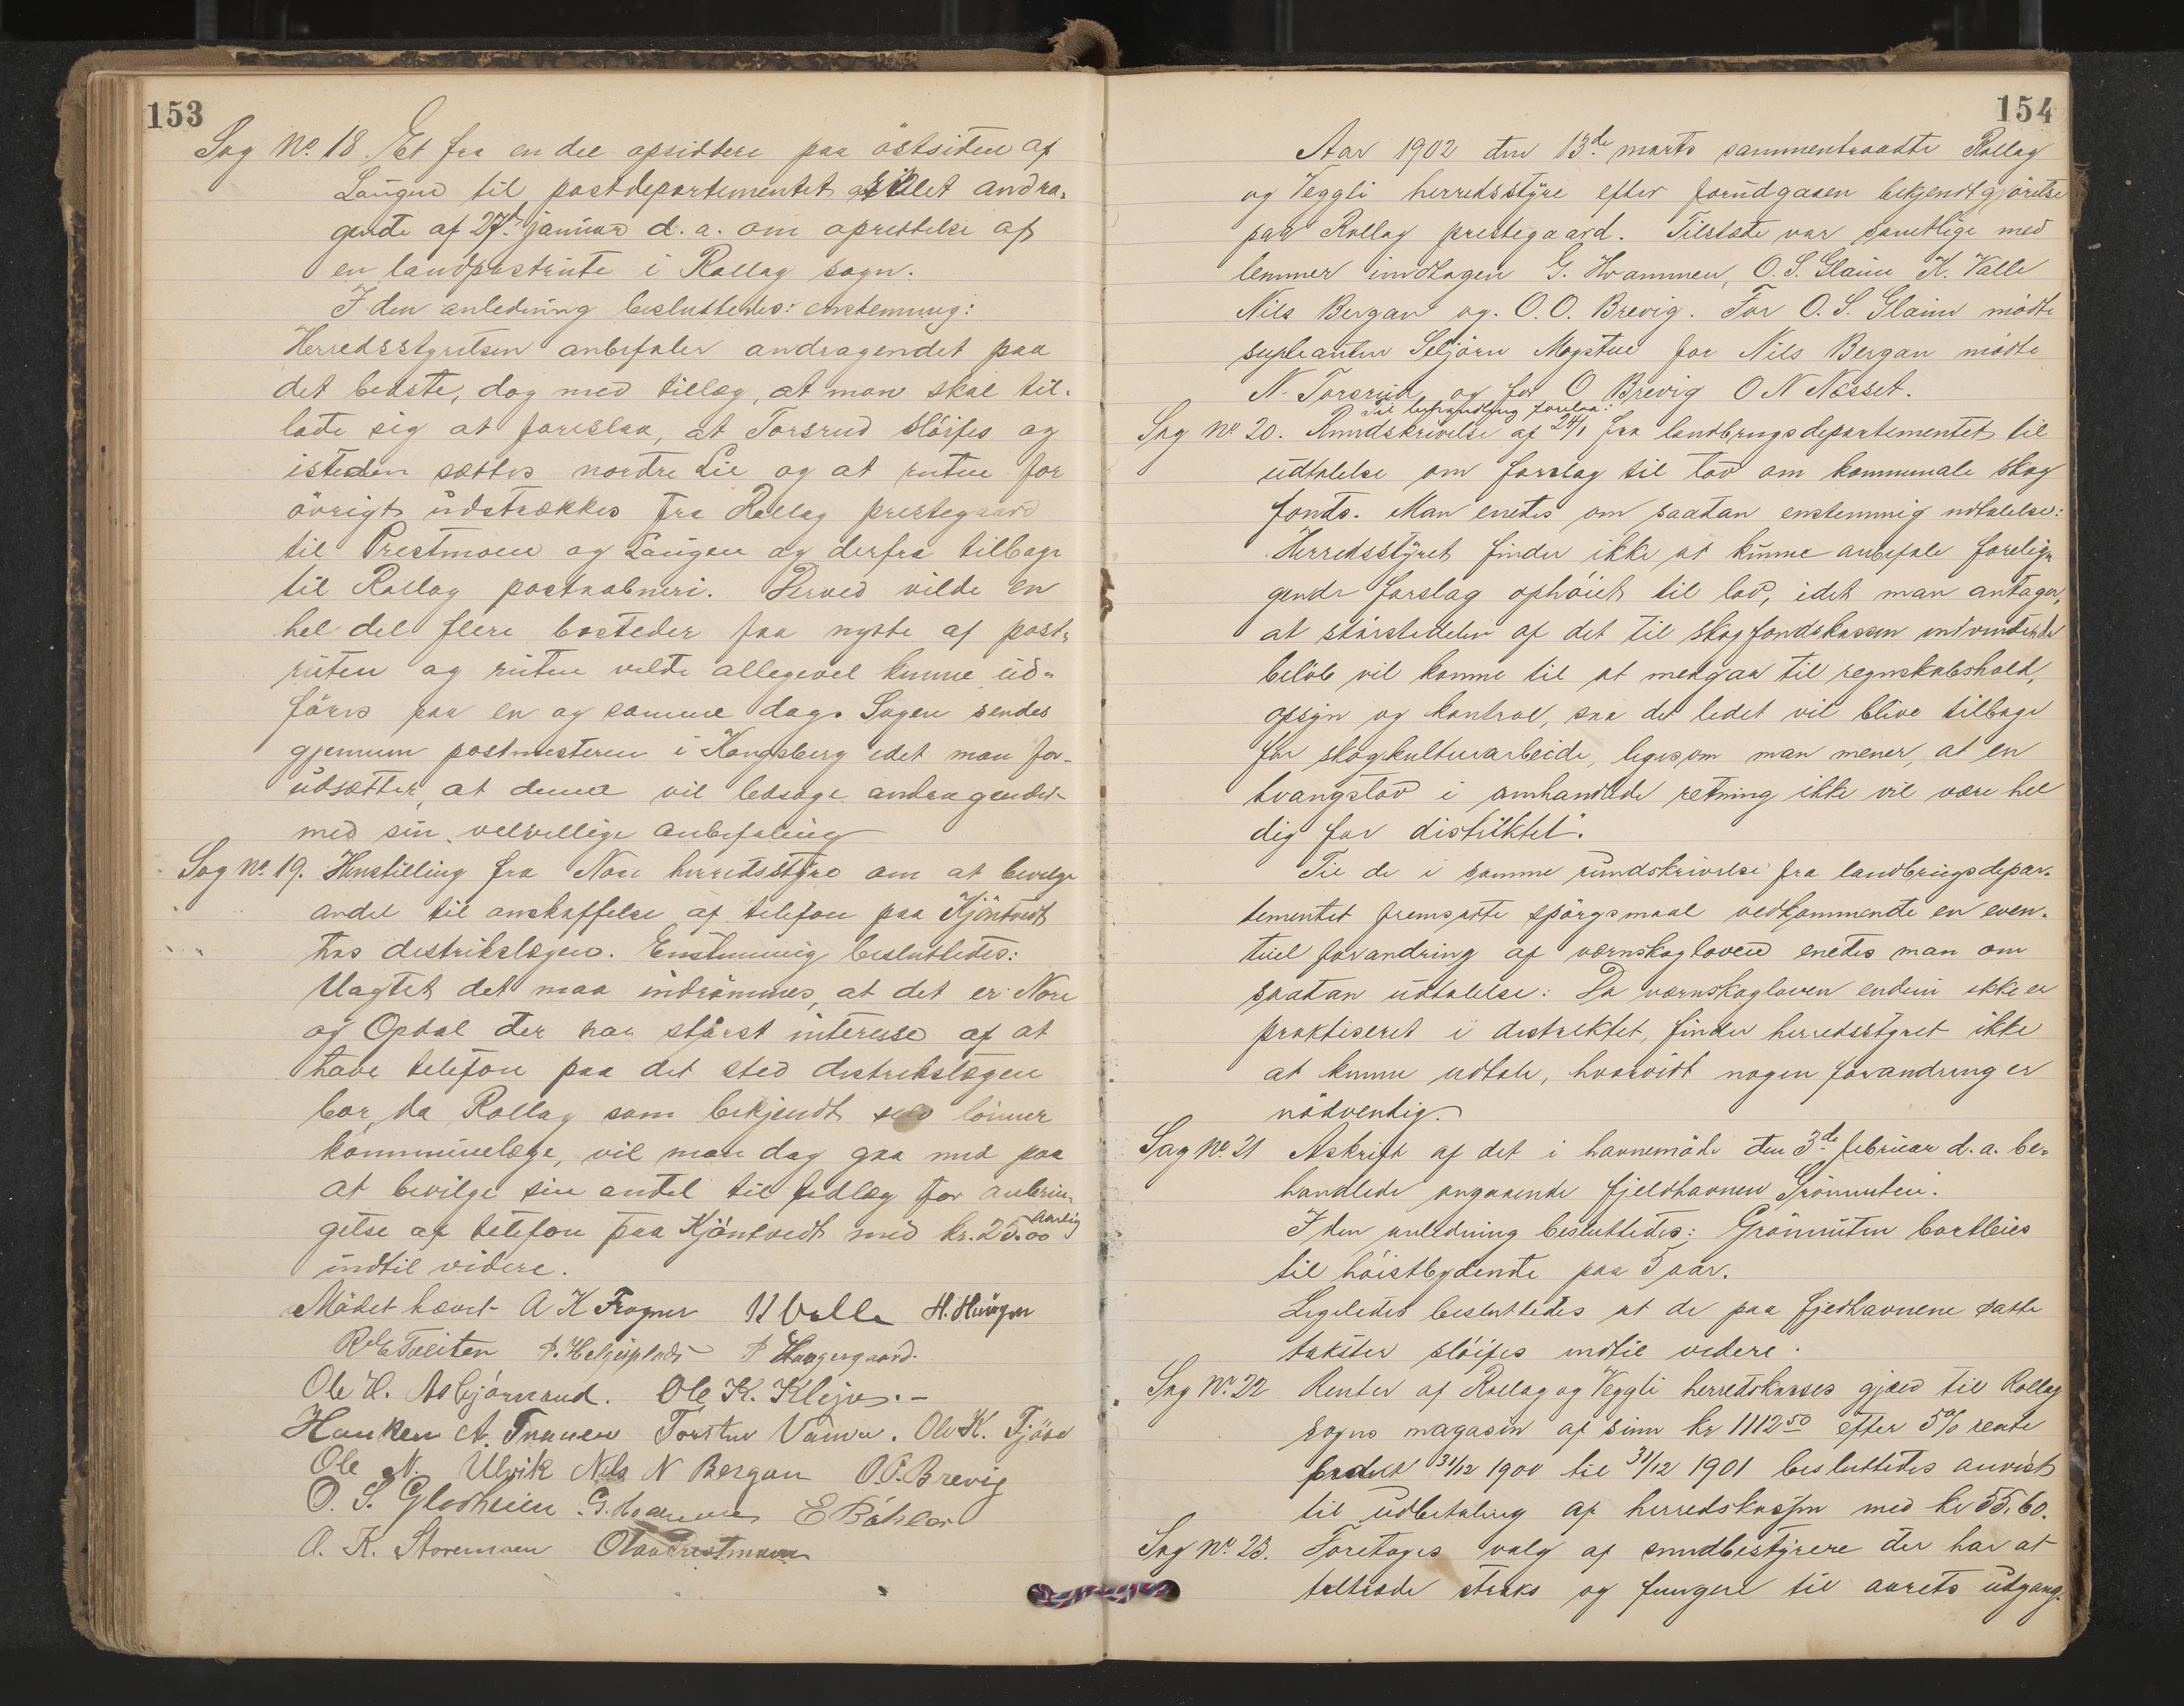 153
Sag No. 18. Et fra en del opsiddere paa østsiden af
Laagen til postdepartementet stilet andra-
gende af 27de januar d. a. om oprettelse af
en landpostrute i Rollag sogn.
I den anledning besluttedes: enstemmig:
Herredsstyrelsen anbefaler andragendet paa
det bedste, dog med tillæg, at man skal til-
lade sig at foreslaa, at Torsrud sløifes og
isteden sættes nordre Lie og at ruten for
øvrigt udstrækkes fra Rollag prestegaard
til Prestmoen og Laugen og derfra tilbage
til Rollag postaabneri. Derved vilde en
hel del flere bosteder faa nytte af post-
ruten og ruten vilde allegevel kunne ud-
føres paa en og samme dag. Sagen sendes
gjennem postmesteren i Kongsberg idet man for-
udsætter, at denne vil ledsage andragendet
med sin velvillige anbefaling
Sag No. 19. Henstilling fra Nore herredsstyre om at bevilge
andel til anskaffelse af telefon paa Kjøntvedt
hos distrikslægen. Enstemmig besluttedes:
Uagtet det maa indrømmes, at det er Nore
og Opdal der har størst interesse af at
have telefon paa det sted distrikslægen
bor, da Rollag som bekjendt selv lønner
kommunelæge, vil man dog gaa med paa
at bevilge sin andel til indlæg for anbrin-
gelse af telefon paa Kjøntvedt med kr. 25.00 aarlig
indtil videre.
Mødet hævet A K Fragner K Valle H. Haugen
R E Traaiten P. Helgeplads P Haugergaard.
Ole H. Asbjørnsrud. Ole K. Klejve. -
Haaken A. Traaen Torsten Vaaen. Ole K. Fjøse
Ole N. Ulvik Nils N Bergan O.O. Brevig
O. S. Gladheim G. Hvammen E Bøhler
A. K. Storemoen Olav Prestmoen
154
Aar 1902 den 13de marts sammentraadte Rollag
og Veggli herredsstyre efter forudgaaen bekjendtgjørelse
paa Rollag prestegaard. Tilstæde var samtlige med
lemmer undtagen G. Hvammen, O. S. Glaim K. Valle
Nils Bergan og O. O. Brevig. For O. S. Glaim mødte
supleanten Seljørn Mogstue for Nils Bergan mødte
N. Torsrud og for O Brevig O N Næsset.
Til behandling forelaa:
Sag No 20. Rundskrivelse af 24/1 fra landbrugsdepartementet til
udtalelse om forslag til lov om kommunale skog
fonds. Man enedes om saadan enstemmig udtalelse:
Herredsstyret finder ikke at kunne anbefale forelig-
gende forslag ophøiet til lov, idet man antager,
at størstedelen af det til skogfondskassen indvundende
beløb vil komme til at medgaa til regnskabshold,
opsyn og kontrol, saa det lidet vil blive tilbage
for skogkulturarbeide, ligesom man mener, at en
tvangslov i omhandlede retning ikke vil være hel
dig for distriktet.
Til de i samme rundskrivelse fra landbrugsdepar-
tementet fremsatte spørgsmaal vedkommende en even-
tuel forandring af vernskogloven enedes man om
saadan udtalelse: Da vernskogloven endnu ikke er
praktiseret i distriktet, finder herredsstyret ikke
at kunne udtale, hvorvidt nogen forandring er
nødvendig.
Sag No. 21 Afskrift af det i havnemøde den 3de februar d. a. be-
handlede angaaende fjeldhavnen Grønnuten.
I den anledning besluttedes: Grønnuten bortleies
til høistbydende paa 5 aar.
Ligeledes besluttedes at de paa fjeldhavnene satte
takster sløifes indtil videre.
Sag No. 22 Renter af Rollag og Veggli herredskasses gjæld til Rollag
sogns magasin af sum kr 1112 50 efter 5% rente
fra 31/12 1900 til 31/12 1901 besluttedes anvist
til udbetaling af herredskassen med kr 55.60.
Sag No. 23. Foretoges valg af sundbestyrere der har at
tiltræde straks og fungere til aarets udgang.